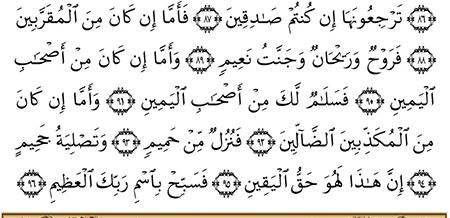 ﴿٨٦﴾ تَرْجِعُونَهَا إِن كُنتُمْ صَـٰدِقِينَ ﴿٨٧﴾ فَأَمَّا إِن كَانَ مِنَ الْمُقَرَّبِينَ
﴿٨٨﴾ فَرَوْحٌ وَرَيْحَانٌ وَجَنَّتُ نَعِيمٍ ﴿٨٩﴾ وَأَمَّا إِن كَانَ مِنْ أَصْحَـٰبِ
الْيَمِينِ ﴿٩٠﴾ فَسَلَـٰمٌ لَّكَ مِنْ أَصْحَـٰبِ الْيَمِينِ ﴿٩١﴾ وَأَمَّا إِن كَانَ
مِنَ الْمُكَذِّبِينَ الضَّآلِّينَ ﴿٩٢﴾ فَنُزُلٌ مِّنْ حَمِيمٍ ﴿٩٣﴾ وَتَصْلِيَةُ جَحِيمٍ
﴿٩٤﴾ إِنَّ هَـٰذَا لَهُوَ حَقُّ الْيَقِينِ ﴿٩٥﴾ فَسَبِّحْ بِاسْمِ رَبِّكَ الْعَظِيمِ ﴿٩٦﴾